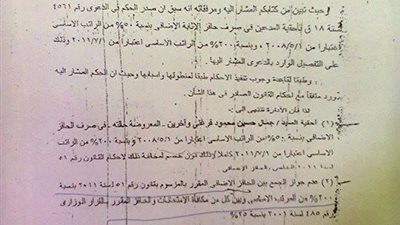 وحيث تبين من كتابكم المشار اليه ومرفقاته انه سبق ان صدر الحكم فى الدعوى رقم ٤٥٦١
لسنة ١٨ ق بأحقية المدعين فى صرف حافز الإثابة الإضافى بنسبة ٥٠% من الراتب الاساسى
اعتبارا من ٢٠٠٨/٥/١ وبنسبة ٢٠٠% من الراتب الاساسى اعتبارا من ٢٠١١/٧/١ وذلك
على التفصيل الوارد بالدعوى المشار اليها.
وطبقا لقاعدة وجوب تنفيذ الاحكام طبقا لمنطوقها واسبابها وحيث ان الحكم المشار اليه
ورد متفقا مع احكام القانون الصادر فى هذا الشأن.
لذا فان الادارة تنتهى الى:
(١) احقية السيد / جمال حسين محمود فرغلى وآخرين - المعروضة حالته - فى صرف الحافز
الاضافى بنسبة ٥٠% من الراتب الاساسى اعتبارا من ٢٠٠٨/٥/١ وبنسبة ٢٠٠% من الراتب
الاساسى اعتبارا من ٢٠١١/٧/١ كاملا ودون خصم لمخالفة ذلك لاحكام القانون رقم ٥١
(٢) عدم جواز الجمع بين الحافز الاضافى المقرر بالمرسوم بقانون رقم ٥١ لسنة ٢٠١١ بنسبة
٢٠٠% من المرتب الاساسى وبين كل من مكافأة الامتحانات والحافز المقرر بالقرار الوزارى
رقم ٤٨٥ لسنة ٢٠٠١ بنسبة ٢٥%